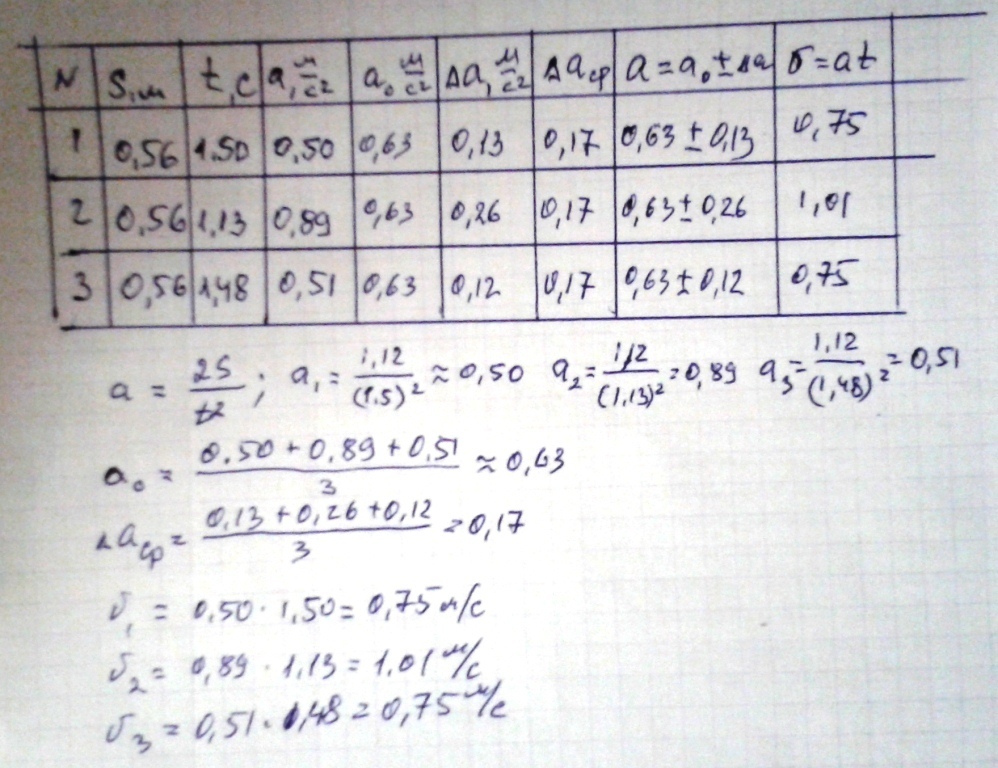 N S,м t,с a, м/с² a₀ м/с² Δa, м/с² Δaср a=a₀±Δa υ=at
1 0,56 1.50 0,50 0,63 0,13 0,17 0,63±0,13 0,75
2 0,56 1,13 0,89 0,63 0,26 0,17 0,63±0,26 1,01
3 0,56 1,48 0,51 0,63 0,12 0,17 0,63±0,12 0,75
a = 2S/t²; a₁ = 1,12/(1.5)² ≈ 0,50 a₂ = 1,12/(1.13)² = 0,89 a₃ = 1,12/(1,48)² = 0,51
a₀ = (0.50 + 0,89 + 0,51)/3 ≈ 0,63
Δaср = (0,13 + 0,26 + 0,12)/3 = 0,17
υ₁ = 0,50 · 1,50 = 0,75 м/с
υ₂ = 0,89 · 1,13 = 1.01 м/с
υ₃ = 0,51 · 1,48 = 0,75 м/с